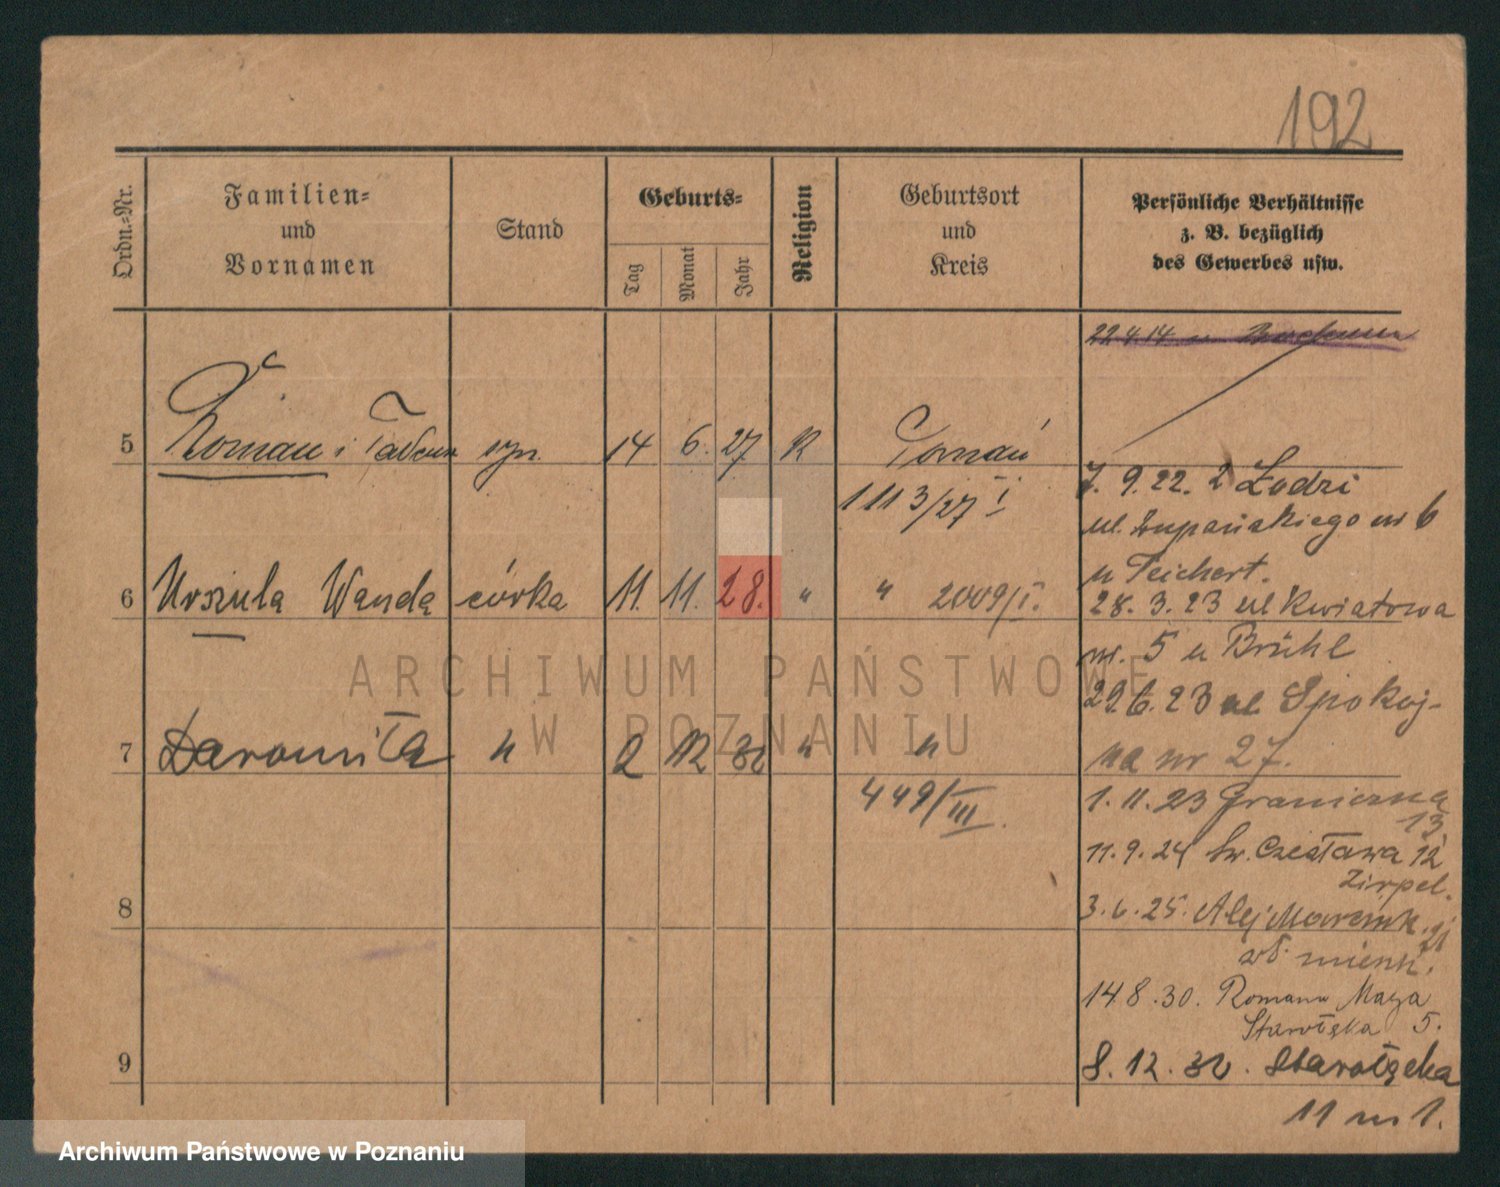 192
Ordn.-Nr.
Familien-
und
Vornamen
Stand
Geburts-
Tag
Monat
Jahr
Religion
Geburtsort
und
Kreis
Persönliche Verhältnisse
z. B. bezüglich
des Gewerbes usw.
22.4.14
5 Roman i Tadeusz syn. 14 6. 27 R Poznań
1113/27 I
6 Urszula Wanda córka 11. 11. 28. " " 2009/I.
7 Daromiła " 2 12 32 " "
449/III.
8
9
7. 9. 22. z Łodzi
ul. Żupańskiego nr 6
u Teichert.
28. 3. 23 ul Kwiatowa
nr. 5 u Brühl
29. 6. 23 ul Spokoj-
na nr 27.
1. 11. 23 Graniczna
13
11. 9. 24 Św. Czesława 12
Zirpel.
3. 6. 25. Alej Marcink. 21
14. 8. 30. Romana Maya
Starołęka 5.
8. 12. 32. Starołęka
11 m 1.
ARCHIWUM PAŃSTWOWE
W POZNANIU
Archiwum Państwowe w Poznaniu